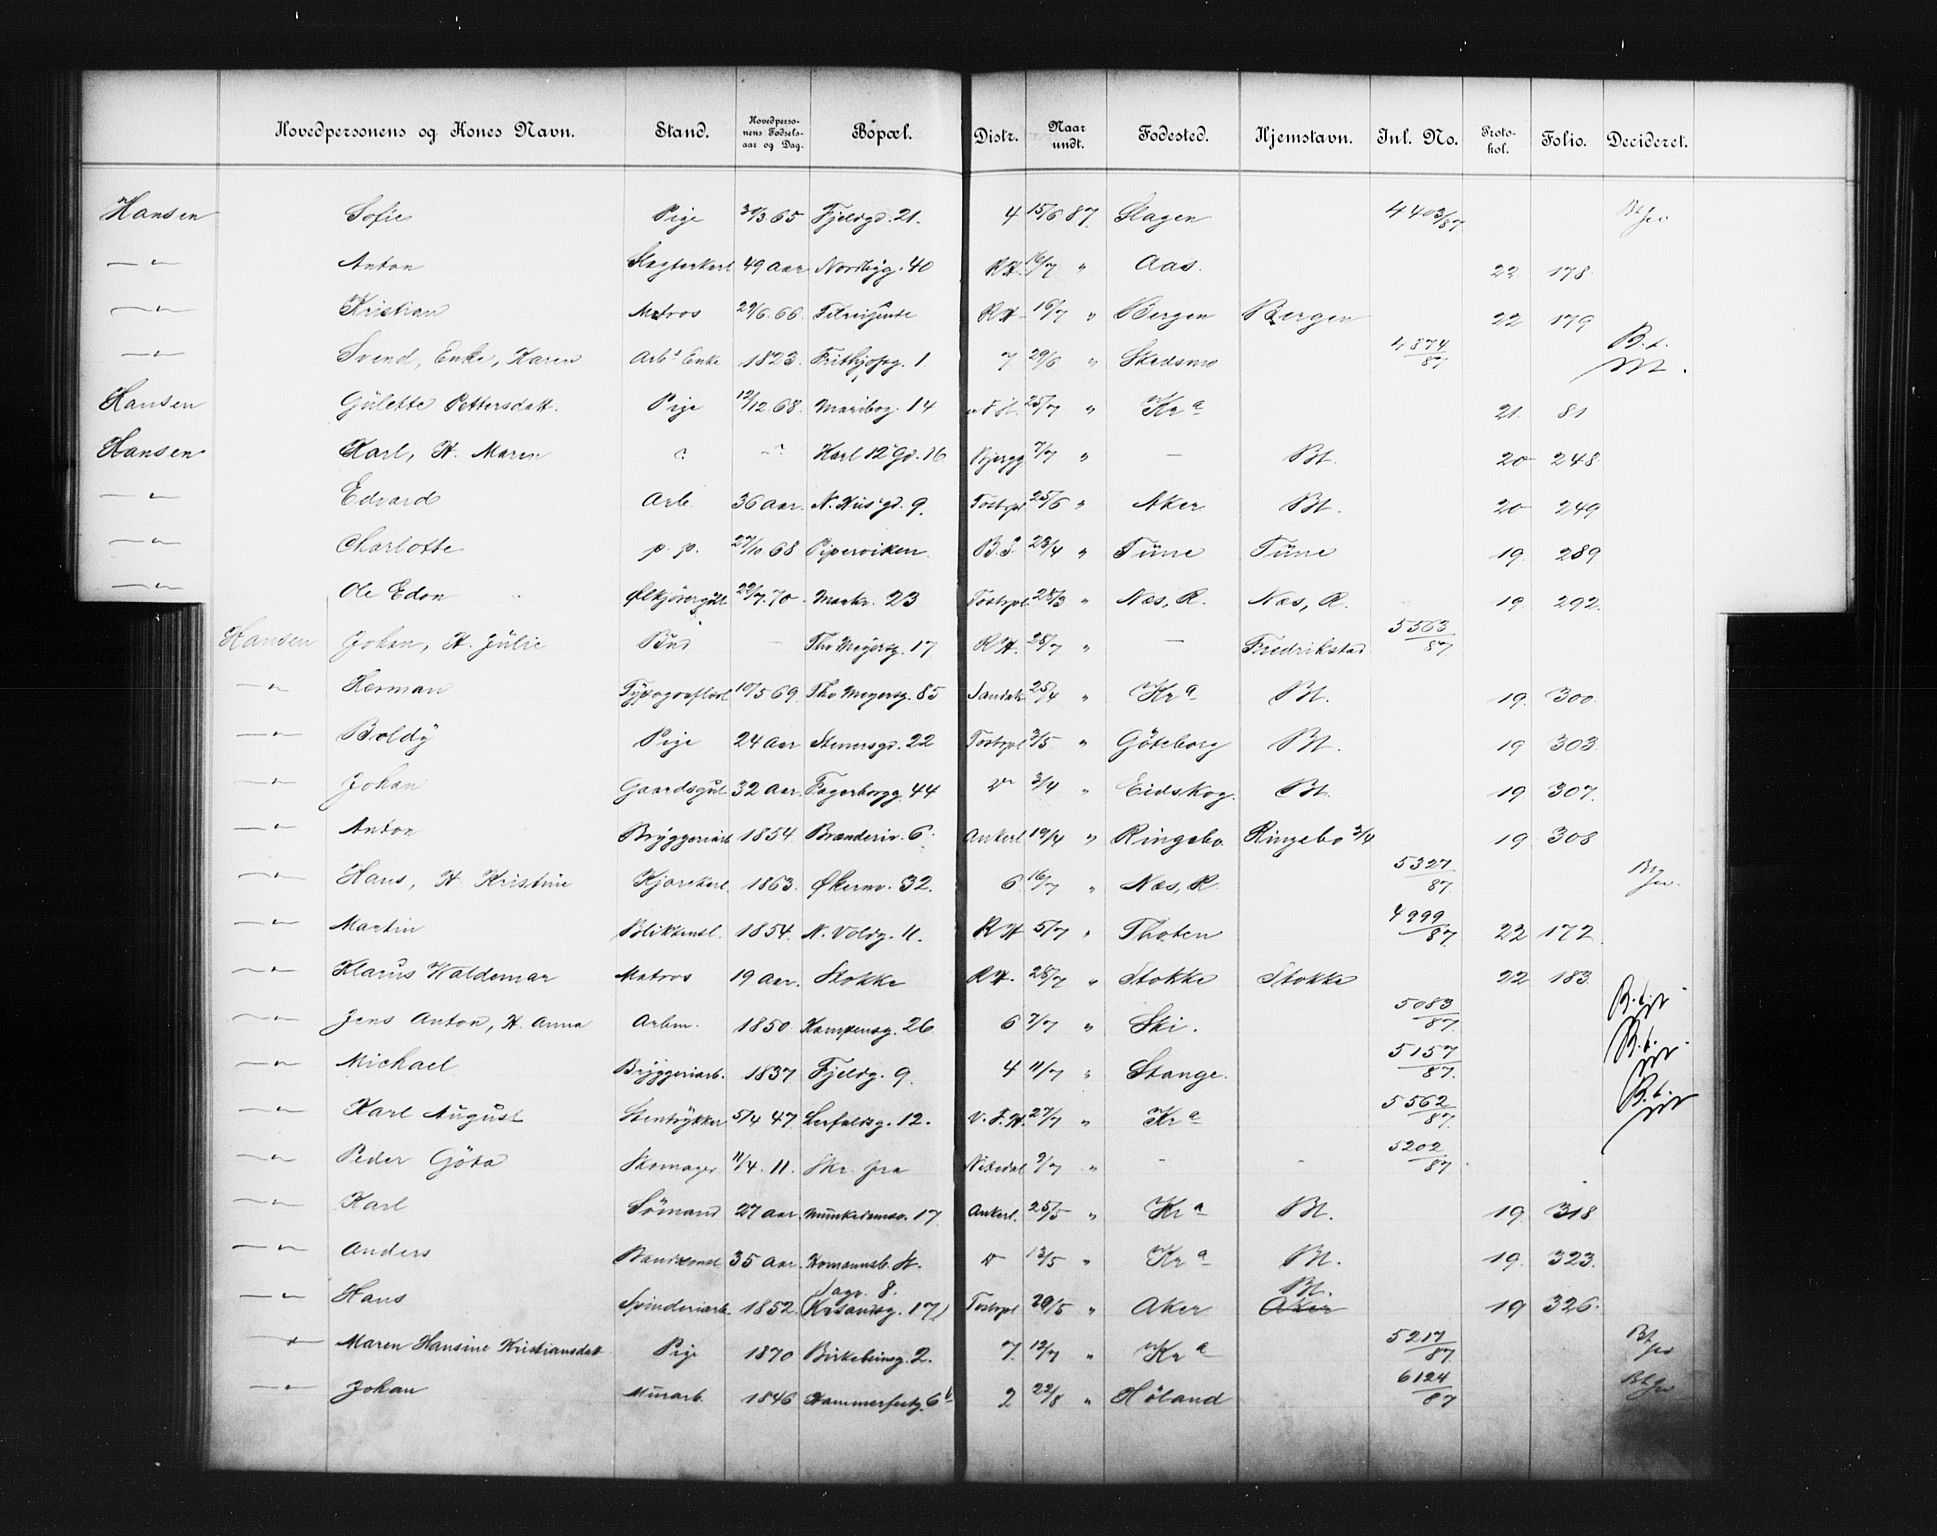 Hovedpersonens og Kones Navn. Stand. Hovedperso-nens Fødsels-aar og Dag. Bopæl. Distr. Naar undt. Fødested. Hjemstavn. Inl. No. Proto-kol. Folio. Decideret.
Hansen Sofie Pige 3/3 65 Fjeldgd. 21. 4 15/6 87. Slagen 4403/87 Bt
—"— Anton Slagterkarl 49 aar Nordbyg. 40 RH. 16/7 " Aas. 22 178
—"— Kristian Matros 29/6.66 RH 16/7 " Bergen Bergen 22 179
—"— Svend, Enke, Karen Arbs Enke 1823. Frithjofsg. 1. 7 29/6 " Skedsmo 4874/87 B.t.
Hansen Gülette Pettersdatt. Pige 12/12.68. Maribog. 14 25/7 " Kra 21. 81
Hansen Karl, K. Maren ? —?— Karl 12 Gd. 16 Bjergg 7/7 " — Bt. 20 248
—"— Edvard Arb. 36 aar. N. Hus'gd. 9. Tostrpl 25/6 " Aker Bt. 20 249
—"— Charlotte p. p. 27/10 68 Piperviken B.S 23/4 " Tüne Tüne 19. 289
—"— Ole Edon Ølkjørergutt 22/7.70. Markv. 23 Tostrpl 25/3 " Næs, R. Næs, R. 19. 292.
Hansen Johan, K. Jülie — Ths Meyersg. 17 RH. 25/7 " — Fredrikstad 5563/87
—"— Herman Typograflærl 10/5 69. Ths Meyersg. 85 Sandak 25/4 " Kra Bt. 19. 300.
—"— Boldy Pige 24 aar Stenersgd. 22 Tostrpl 3/5 " Göteborg Bt. 19 303.
—"— Johan Gaardsgut 32 aar. Fagerborgg 44 V 3/4 " Eidskog. Bt. 19 307.
—"— Anton Bryggeriarb 1854. Brænderiv. 6. Ankerl 19/4 " Ringebo Ringebo 3/4 19. 308
—"— Hans, K. Kristine Kjørekarl. 1863. Økernv. 32. 6 16/7 " Næs, R. 5327/87 Bt
—"— Martin Blikkensl. 1854. N. Voldg. 11. RH 5/7 " Thoten 4999/87 22 172.
—"— Klaus Waldemar Matros 19 aar. Stokke RH. 25/7 " Stokke Stokke 22 183
—"— Jens Anton, K. Anna Arbm. 1850. Kampensg. 26. 6 7/7 " Ski. 5083/87 B.t.
—"— Michael Bryggeriarb. 1837 Fjeldg. 9. 4 11/7 " Stange. 5157/87. B.t.
—"— Karl August Stentrykker 5/4 47 Lerfaldsg. 12. V.F.H. 27/7 " Kra 5562/87. B.t.
—"— Peder Göta Skomager 11/4. 11. Skr. fra Nitedal 9/7 " - - 5202/87
—"— Karl Sømand 27 aar. Munkedamsv. 17. Ankerl. 25/5 " Kra Bt. 19. 318
—"— Anders 35 aar. Homannsb. St. V 13/5 " Kra Bt. 19. 323.
—"— Hans Spinderiarb. 1852. Sagv. 8. (Krsandsg. 17) Tostrpl 20/5 " Aker Bt. Aker 19 326.
—"— Maren Hansine Kristiansdatt Pige 1870 Birkebeinsg. 2. 7. 12/7 " Kra 5217/87. Bt
—"— Johan Murarb. 1846 Hammerfestg. 6b 2 22/8 " Höland 6124/87 Bt